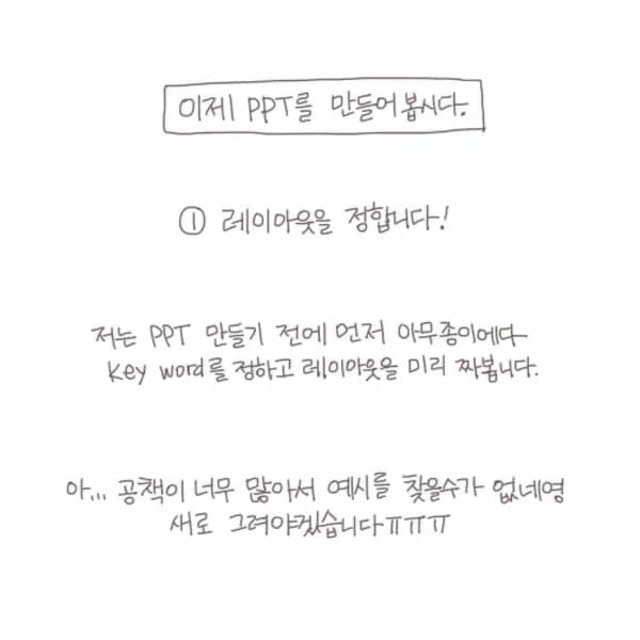 이제 PPT를 만들어봅시다.
① 레이아웃을 정합니다!
저는 PPT 만들기 전에 먼저 아무종이에다
Key word를 정하고 레이아웃을 미리 짜봅니다.
아... 공책이 너무 많아서 예시를 찾을수가 없네영
새로 그려야겠습니다ㅠㅠㅠ